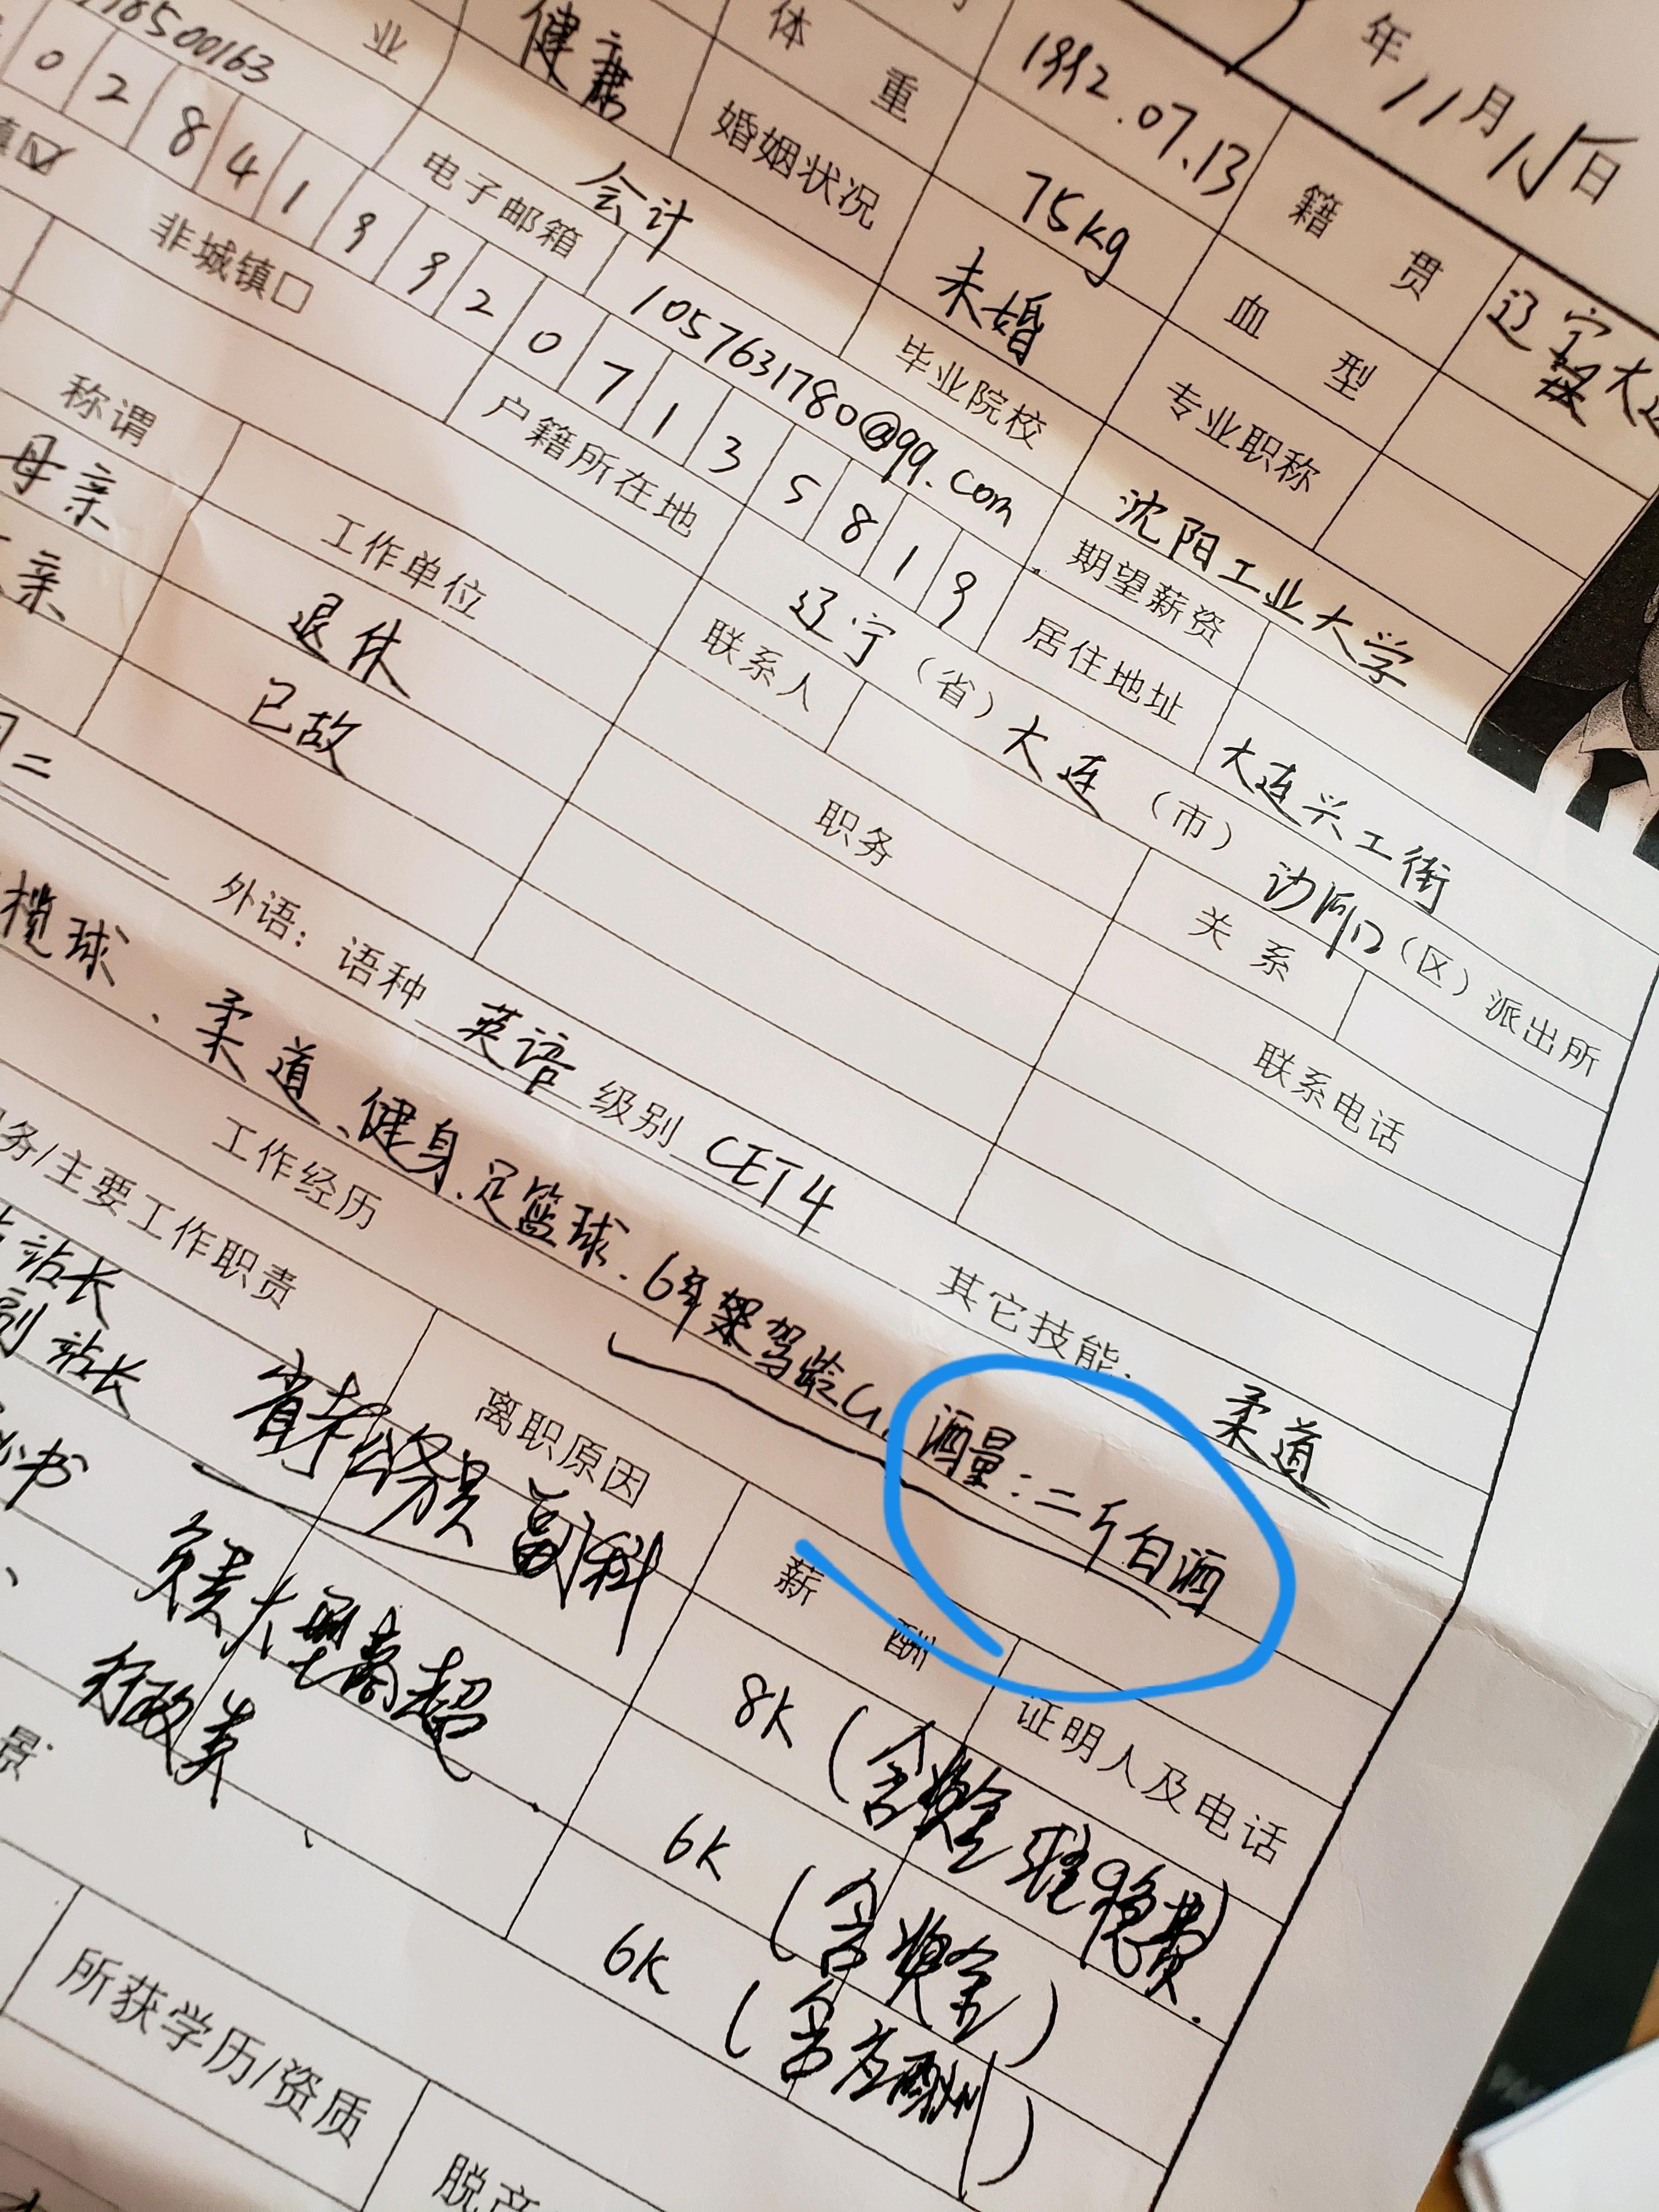 年11月15日
籍贯 辽宁大连
1992.07.13
体重 75kg 血型
健康 婚姻状况 未婚 专业职称
业 会计 毕业院校 沈阳工业大学
78500163 电子邮箱 1057631780@qq.com 期望薪资
0284199207135819 居住地址 大连兴工街
镇☑ 非城镇□ 户籍所在地 辽宁（省）大连（市）沙河口（区）派出所
联系人 关系
称谓 工作单位 职务 联系电话
母亲 退休
亲 已故
二 外语：语种 英语 级别 CET4 其它技能： 柔道
榄球、柔道、健身、足篮球、6年驾龄C1、酒量：二斤白酒
工作经历
务/主要工作职责 离职原因 薪酬 证明人及电话
站长 省考公务员副科 8K（含奖金 费）
副站长 6K（含奖金）
书 负责大型商超 6K（含 酬）
行政类
景
所获学历/资质 脱产